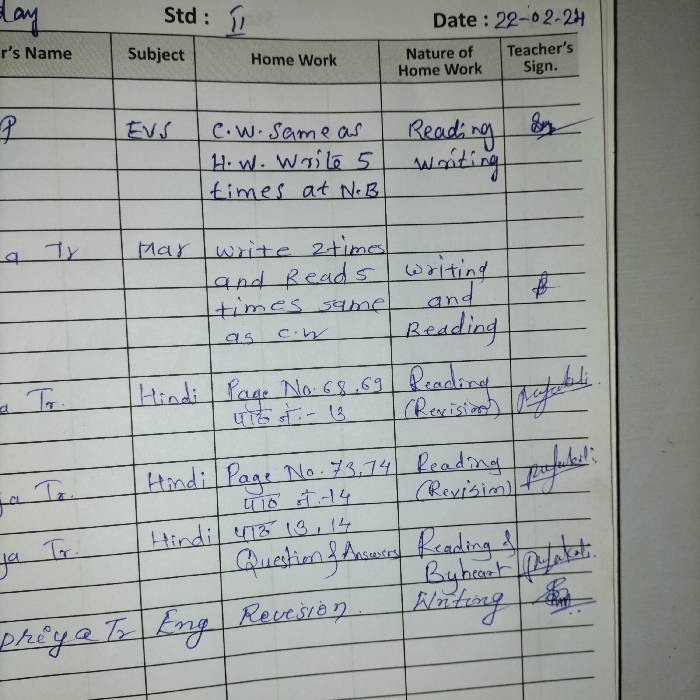 day Std : II Date : 22-02-24
r's Name Subject Home Work Nature of Home Work Teacher's Sign.
EVS C.W. Same as Reading
H.W. Write 5 Writing
times at N.B
a Tr Mar Write 2 times
and Read 5 Writing
times same and
as C.W Reading
a Tr. Hindi Page No. 68,69 Reading
पाठ नं:- 13 (Revision)
a Tr. Hindi Page No. 73,74 Reading
पाठ नं-14 (Revisim)
ya Tr. Hindi पाठ 13, 14 Reading &
Question & Answers Byheart
priya Tr Eng Revision. Writing